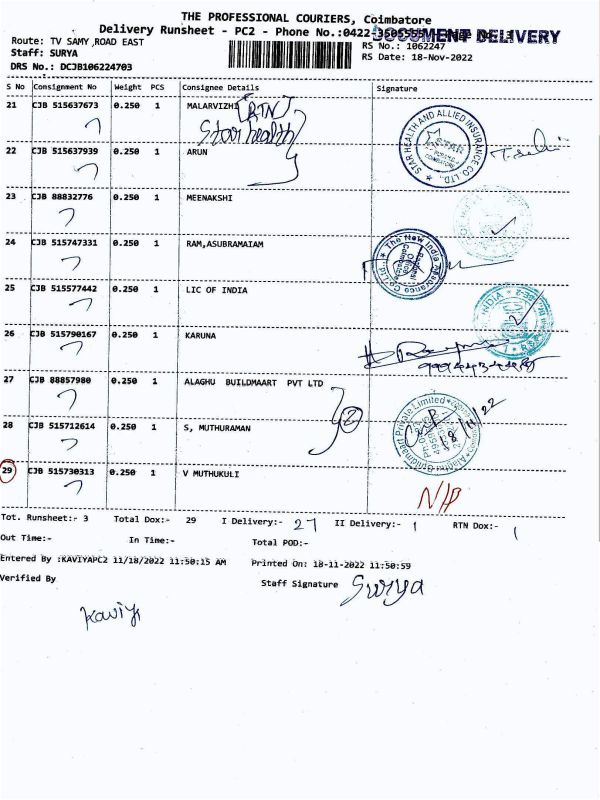 THE PROFESSIONAL COURIERS, Coimbatore
Delivery Runsheet - PC2 - Phone No.:0422-
DOCUMENT DELIVERY
Route: TV SAMY ,ROAD EAST
RS No.: 1062247
Staff: SURYA
RS Date: 18-Nov-2022
DRS No.: DCJB106224703
S No Consignment No Weight PCS Consignee Details Signature
21 CJB 515637673 0.250 1 MALARVIZHI [RTN]
Star health
STAR HEALTH AND ALLIED INSURANCE CO. LTD.
22 CJB 515637939 0.250 1 ARUN
23 CJB 88832776 0.250 1 MEENAKSHI
24 CJB 515747331 0.250 1 RAM,ASUBRAMAIAM
The New India Assurance Co. Ltd.
25 CJB 515577442 0.250 1 LIC OF INDIA
26 CJB 515790167 0.250 1 KARUNA
27 CJB 88857980 0.250 1 ALAGHU BUILDMAART PVT LTD
28 CJB 515712614 0.250 1 S, MUTHURAMAN 2
18/11/22
29 CJB 515730313 0.250 1 V MUTHUKULI
N/P
Tot. Runsheet:- 3 Total Dox:- 29 I Delivery:- 27 II Delivery:- 1 RTN Dox:- 1
Out Time:- In Time:- Total POD:-
Entered By :KAVIYAPC2 11/18/2022 11:50:15 AM Printed On: 18-11-2022 11:50:59
Verified By Staff Signature Surya
Kaviya